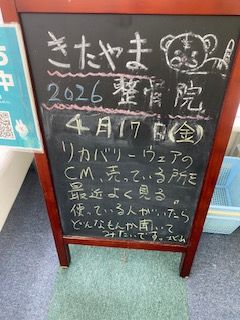 きたやま
2026 整骨院
4月17日(金)
リカバリーウェアの
CM、売っている所を
最近よく見る。
使っている人がいたら
どんなもんか聞いて
みたいです。
中